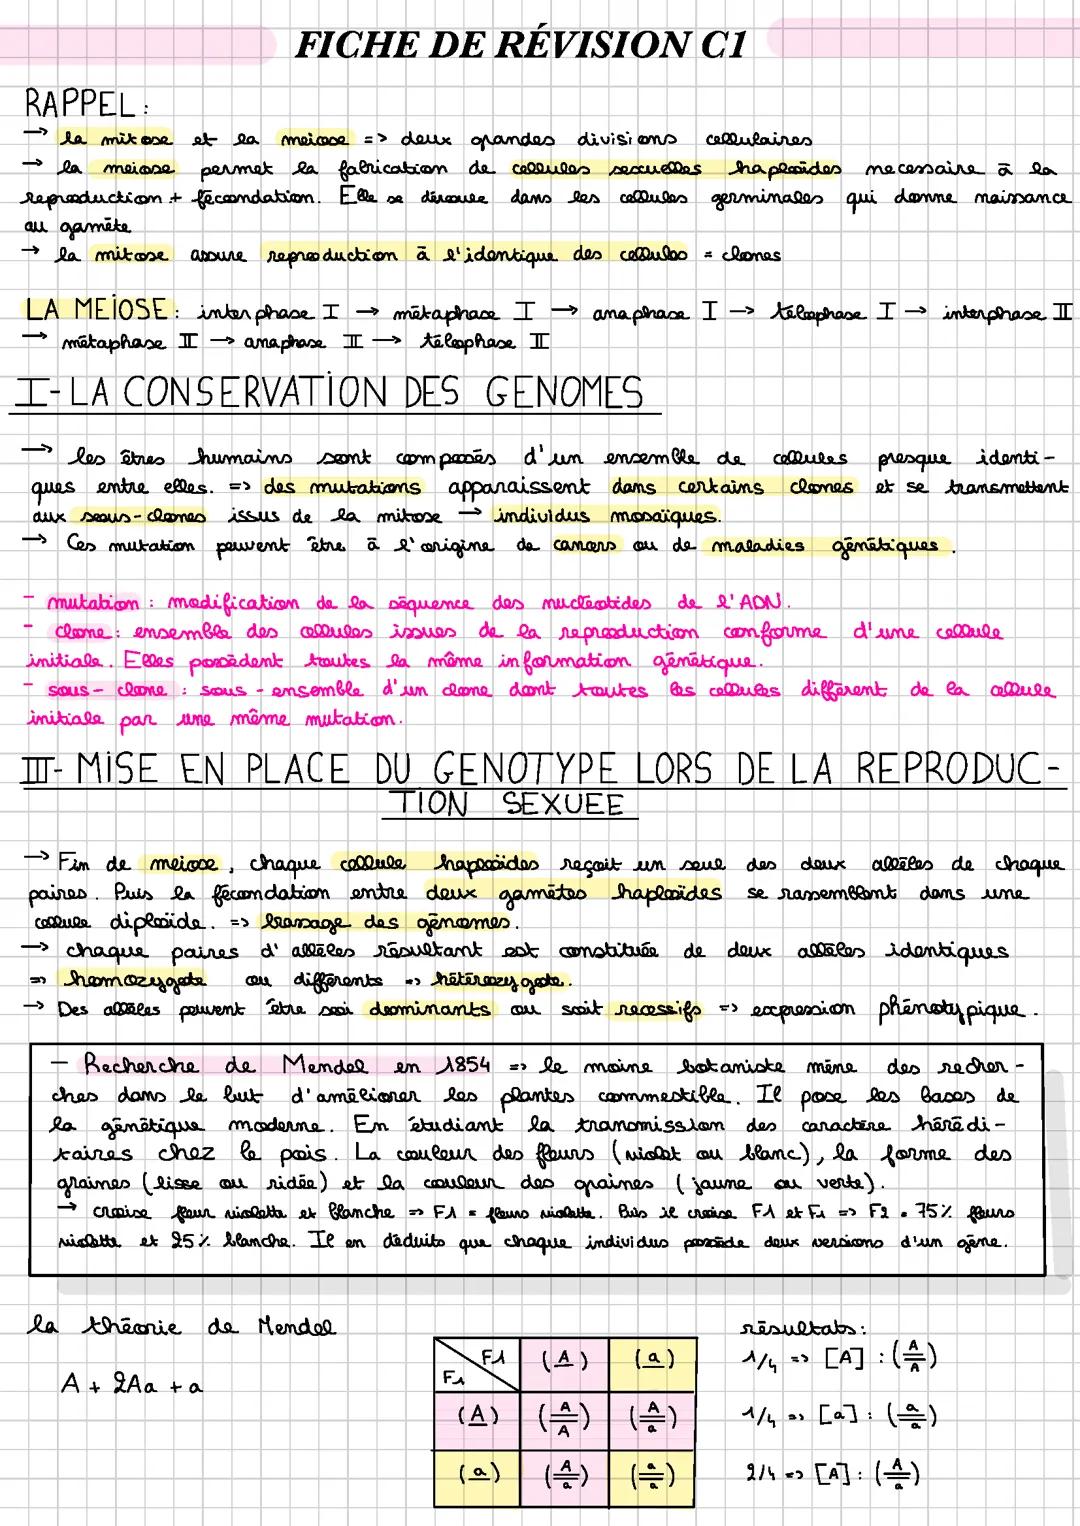 FICHE DE RÉVISION C1
RAPPEL:
→ la mitose et la meiose => deux grandes divisions cellulaires
→ la meiose permet la fabrication de cellules sexuelles haploïdes necessaire à la
reproduction + fécondation. Elle se déroule dans les cellules germinales qui donne naissance
au gamète
→ la mitose assure reproduction à l'identique des cellules = clones
LA MEIOSE: interphase I → métaphase I → anaphase I → télophase I → interphase II
→ métaphase II → anaphase II → télophase II
I- LA CONSERVATION DES GENOMES
→ les êtres humains sont composés d'un ensemble de cellules presque identi-
ques entre elles. => des mutations apparaissent dans certains clones et se transmettent
aux sous-clones issus de la mitose → individus mosaïques.
→ Ces mutation peuvent être à l'origine de cancers ou de maladies génétiques.
- mutation : modification de la séquence des nucléotides de l'ADN.
- clone : ensemble des cellules issues de la reproduction conforme d'une cellule
initiale. Elles possèdent toutes la même information génétique.
- sous-clone : sous-ensemble d'un clone dont toutes les cellules différent de la cellule
initiale par une même mutation.
III- MISE EN PLACE DU GENOTYPE LORS DE LA REPRODUC-
TION SEXUEE
→ Fin de meiose, chaque cellule haploïdes reçoit un seul des deux allèles de chaque
paires. Puis la fécondation entre deux gamètes haploïdes se rassemblent dans une
cellule diploïde. => brassage des génomes.
→ chaque paires d'allèles résultant est constituée de deux allèles identiques
=> homozygote ou différents => hétérozygote.
→ Des allèles peuvent être soi dominants ou soit recessifs => expression phénotypique.
- Recherche de Mendel en 1854 => le moine botaniste mène des recher-
ches dans le but d'améliorer les plantes commestible. Il pose les bases de
la génétique moderne. En étudiant la transmission des caractère hérédi-
taires chez le pois. La couleur des fleurs (violet ou blanc), la forme des
graines (lisse ou ridée) et la couleur des graines (jaune ou verte).
→ croise fleur violette et blanche => F1 = fleurs violette. Puis il croise F1 et F1 => F2 = 75% fleurs
violette et 25% blanche. Il en déduits que chaque individus possède deux versions d'un gène.
la théorie de Mendel
A + 2Aa + a
F1 (A) (a)
F1
(A) (A/A) (A/a)
(a) (A/a) (a/a)
résultats:
1/4 => [A] : (A/A)
1/4 => [a] : (a/a)
2/4 => [A] : (A/a)